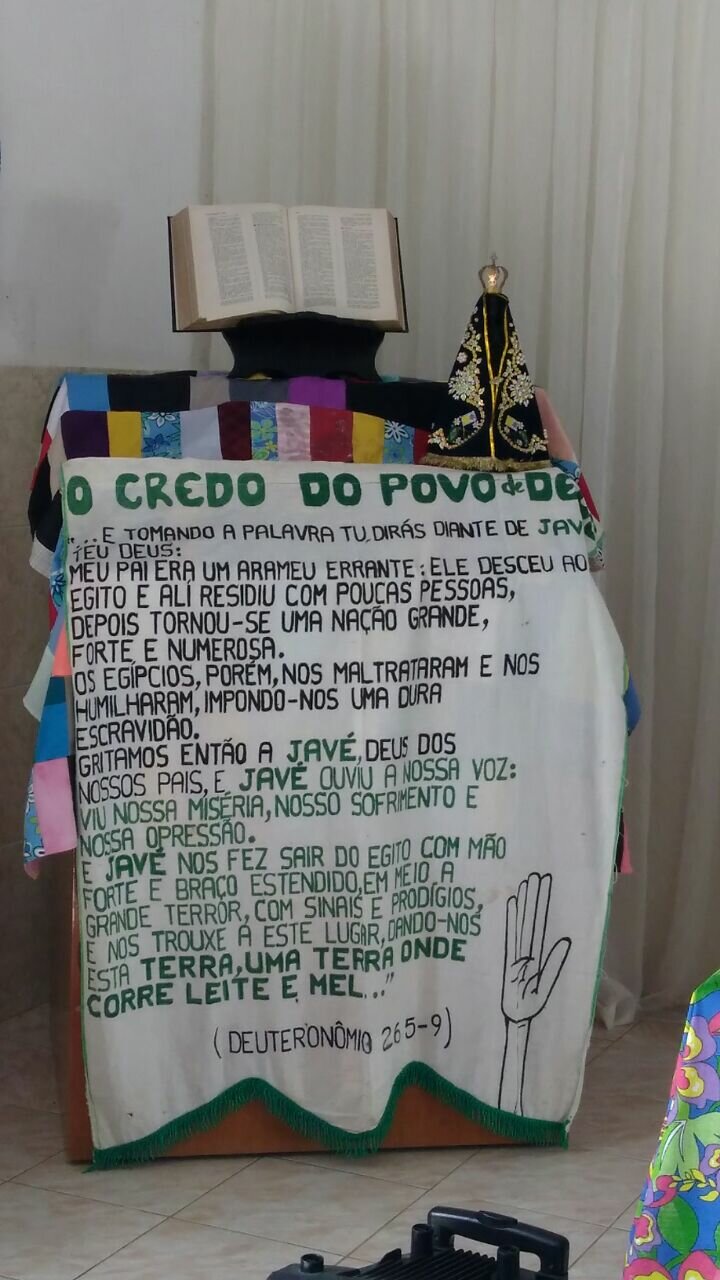 O CREDO DO POVO de DE
"...E TOMANDO A PALAVRA TU, DIRÁS DIANTE DE JAV
TEU DEUS:
MEU PAI ERA UM ARAMEU ERRANTE: ELE DESCEU AO
EGITO E ALÍ RESIDIU COM POUCAS PESSOAS,
DEPOIS TORNOU-SE UMA NAÇÃO GRANDE,
FORTE E NUMEROSA.
OS EGÍPCIOS, PORÉM, NOS MALTRATARAM E NOS
HUMILHARAM, IMPONDO-NOS UMA DURA
ESCRAVIDÃO.
GRITAMOS ENTÃO A JAVÉ, DEUS DOS
NOSSOS PAIS, E JAVÉ OUVIU A NOSSA VOZ:
VIU NOSSA MISÉRIA, NOSSO SOFRIMENTO E
NOSSA OPRESSÃO.
E JAVÉ NOS FEZ SAIR DO EGITO COM MÃO
FORTE E BRAÇO ESTENDIDO, EM MEIO A
GRANDE TERROR, COM SINAIS E PRODÍGIOS,
E NOS TROUXE A ESTE LUGAR, DANDO-NOS
ESTA TERRA, UMA TERRA ONDE
CORRE LEITE E MEL..."
(DEUTERONÔMIO 26 5-9)